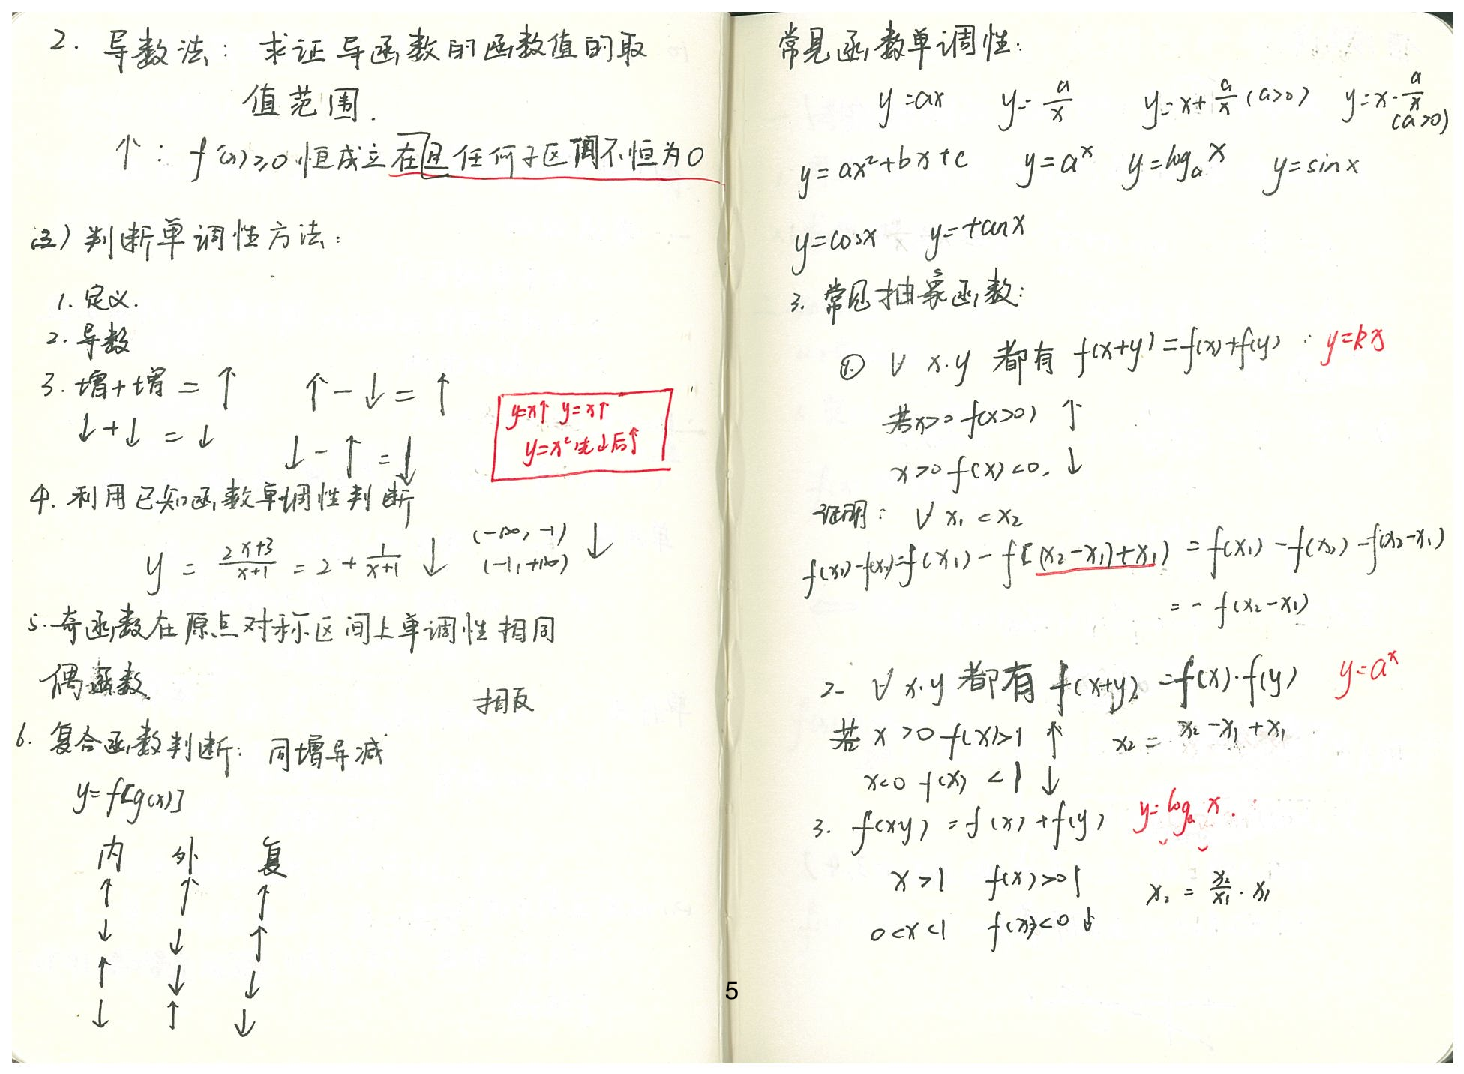 2. 导数法: 求证导函数的函数值的取
值范围.
↑: f'(x)≥0 恒成立在且任何子区间不恒为0
(五) 判断单调性方法:
1. 定义.
2. 导数
3. 增+增 = ↑ ↑-↓=↑
↓+↓ = ↓ ↓-↑=↓
y=x↑ y=x↑
y=x² 先↓后↑
4. 利用已知函数单调性判断
y = \frac{2x+3}{x+1} = 2 + \frac{1}{x+1} ↓ (-∞, -1) (-1, +∞) ↓
5. 奇函数在原点对称区间上单调性相同
偶函数 相反
6. 复合函数判断: 同增异减
y=f[g(x)]
内 外 复
↑ ↑ ↑
↓ ↓ ↑
↑ ↓ ↓
↓ ↑ ↓
常见函数单调性:
y=ax y=\frac{a}{x} y=x+\frac{a}{x} (a>0) y=x-\frac{a}{x} (a>0)
y=ax²+bx+c y=aˣ y=logₐx y=sinx
y=cosx y=tanx
3. 常见抽象函数:
①. ∀ x.y 都有 f(x+y)=f(x)+f(y) y=kx
若x>0 f(x>0) ↑
x>0 f(x)<0. ↓
证明: ∀ x₁<x₂
f(x₁)-f(x₂)=f(x₁)-f[(x₂-x₁)+x₁) = f(x₁)-f(x₁)-f(x₂-x₁)
= - f(x₂-x₁)
2- ∀ x.y 都有 f(x+y) =f(x)·f(y) y=aˣ
若 x>0 f(x)>1 ↑ x₂= x₂-x₁+x₁
x<0 f(x) <1 ↓
3. f(xy) = f(x)+f(y) y=logₐx.
x>1 f(x)>0↑ x₂ = \frac{x₂}{x₁}·x₁
0<x<1 f(x)<0 ↓
5